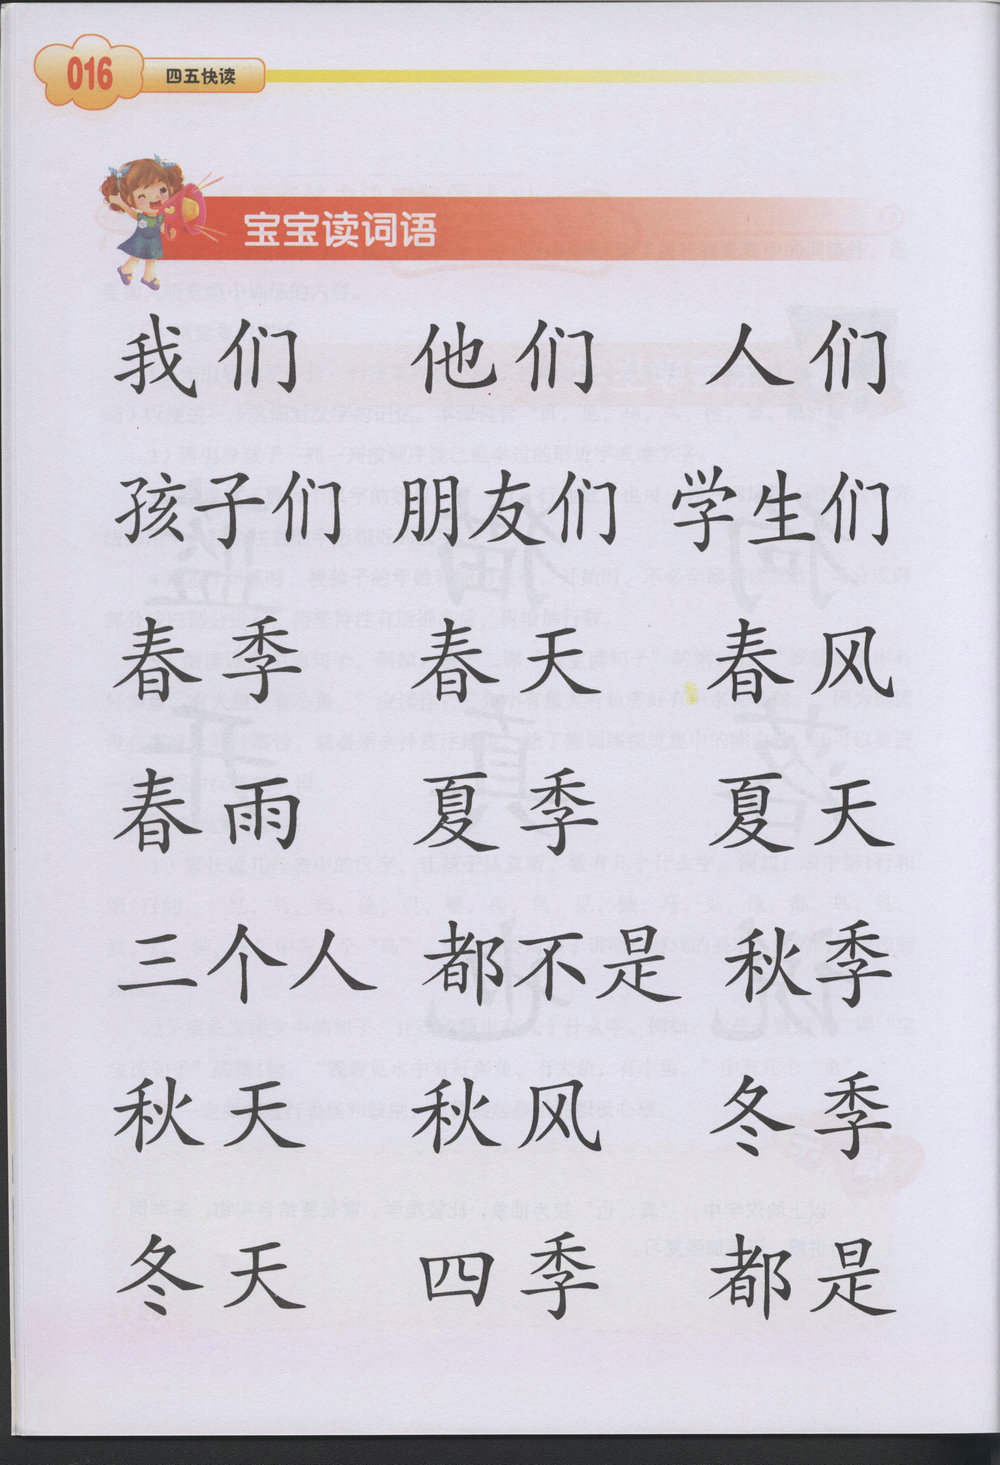 016 四五快读
宝宝读词语
我们 他们 人们
孩子们 朋友们 学生们
春季 春天 春风
春雨 夏季 夏天
三个人 都不是 秋季
秋天 秋风 冬季
冬天 四季 都是